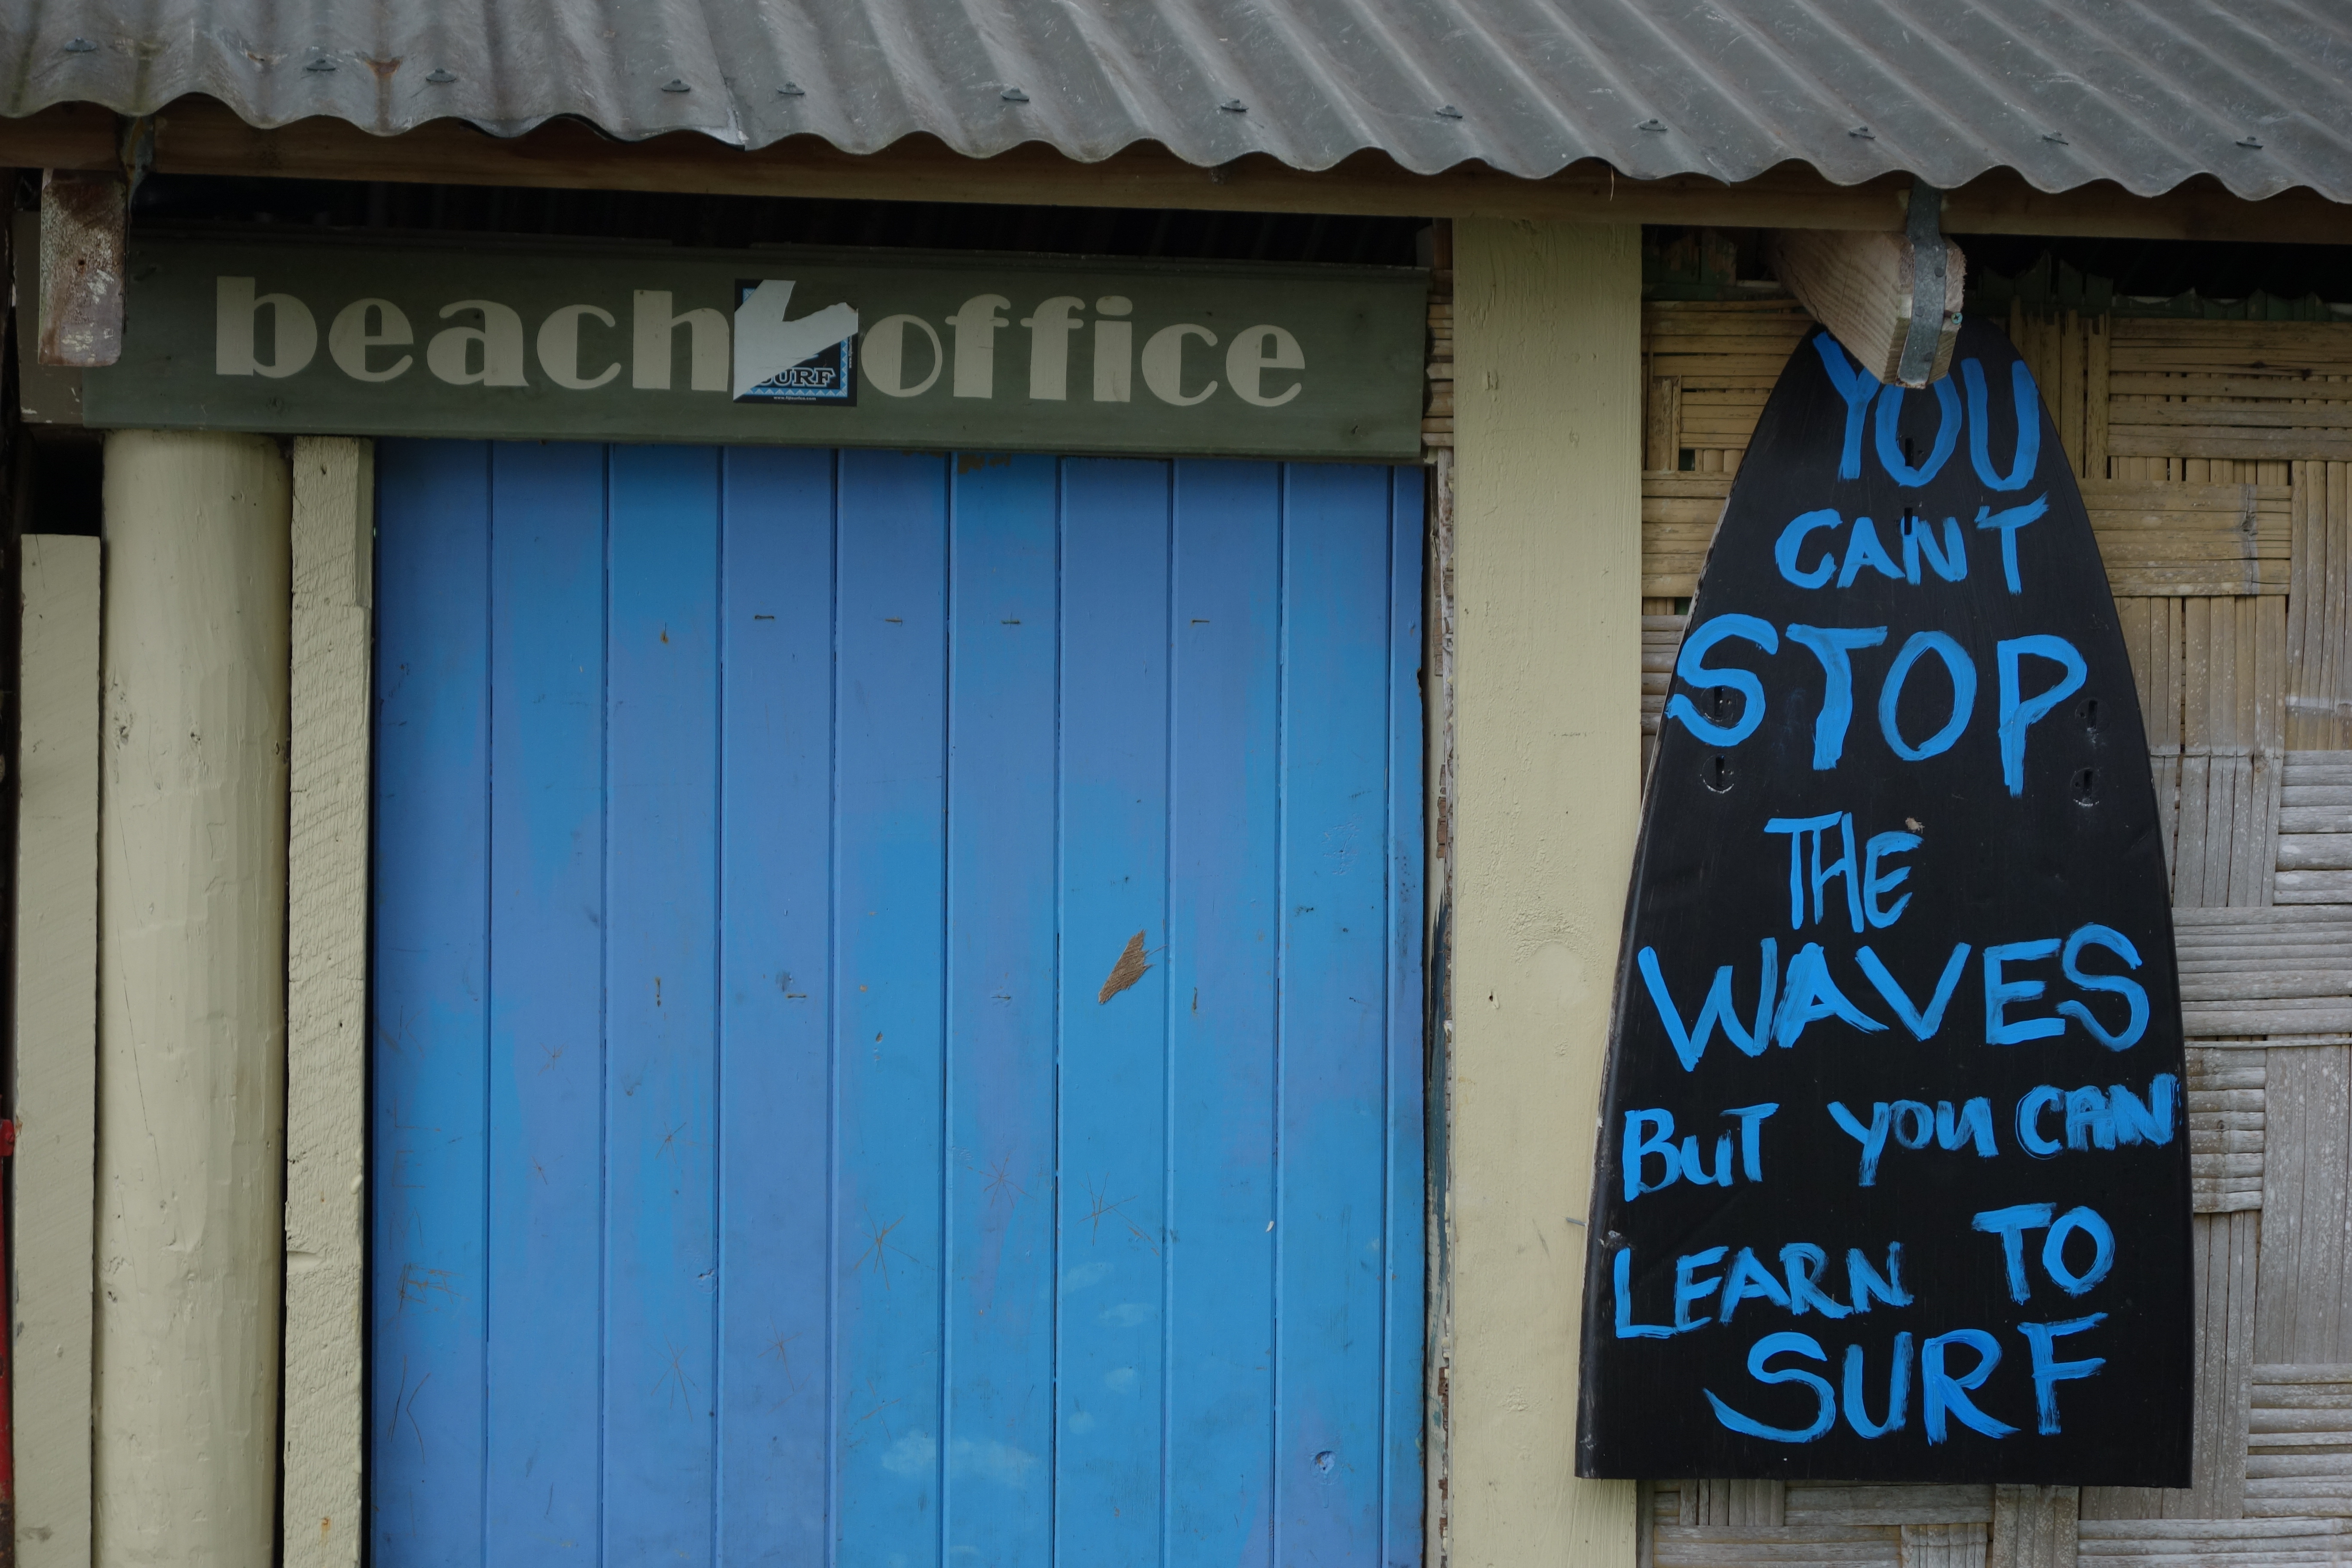 beach office
SURF
YOU
CAN'T
STOP
THE
WAVES
BUT YOU CAN
LEARN TO
SURF